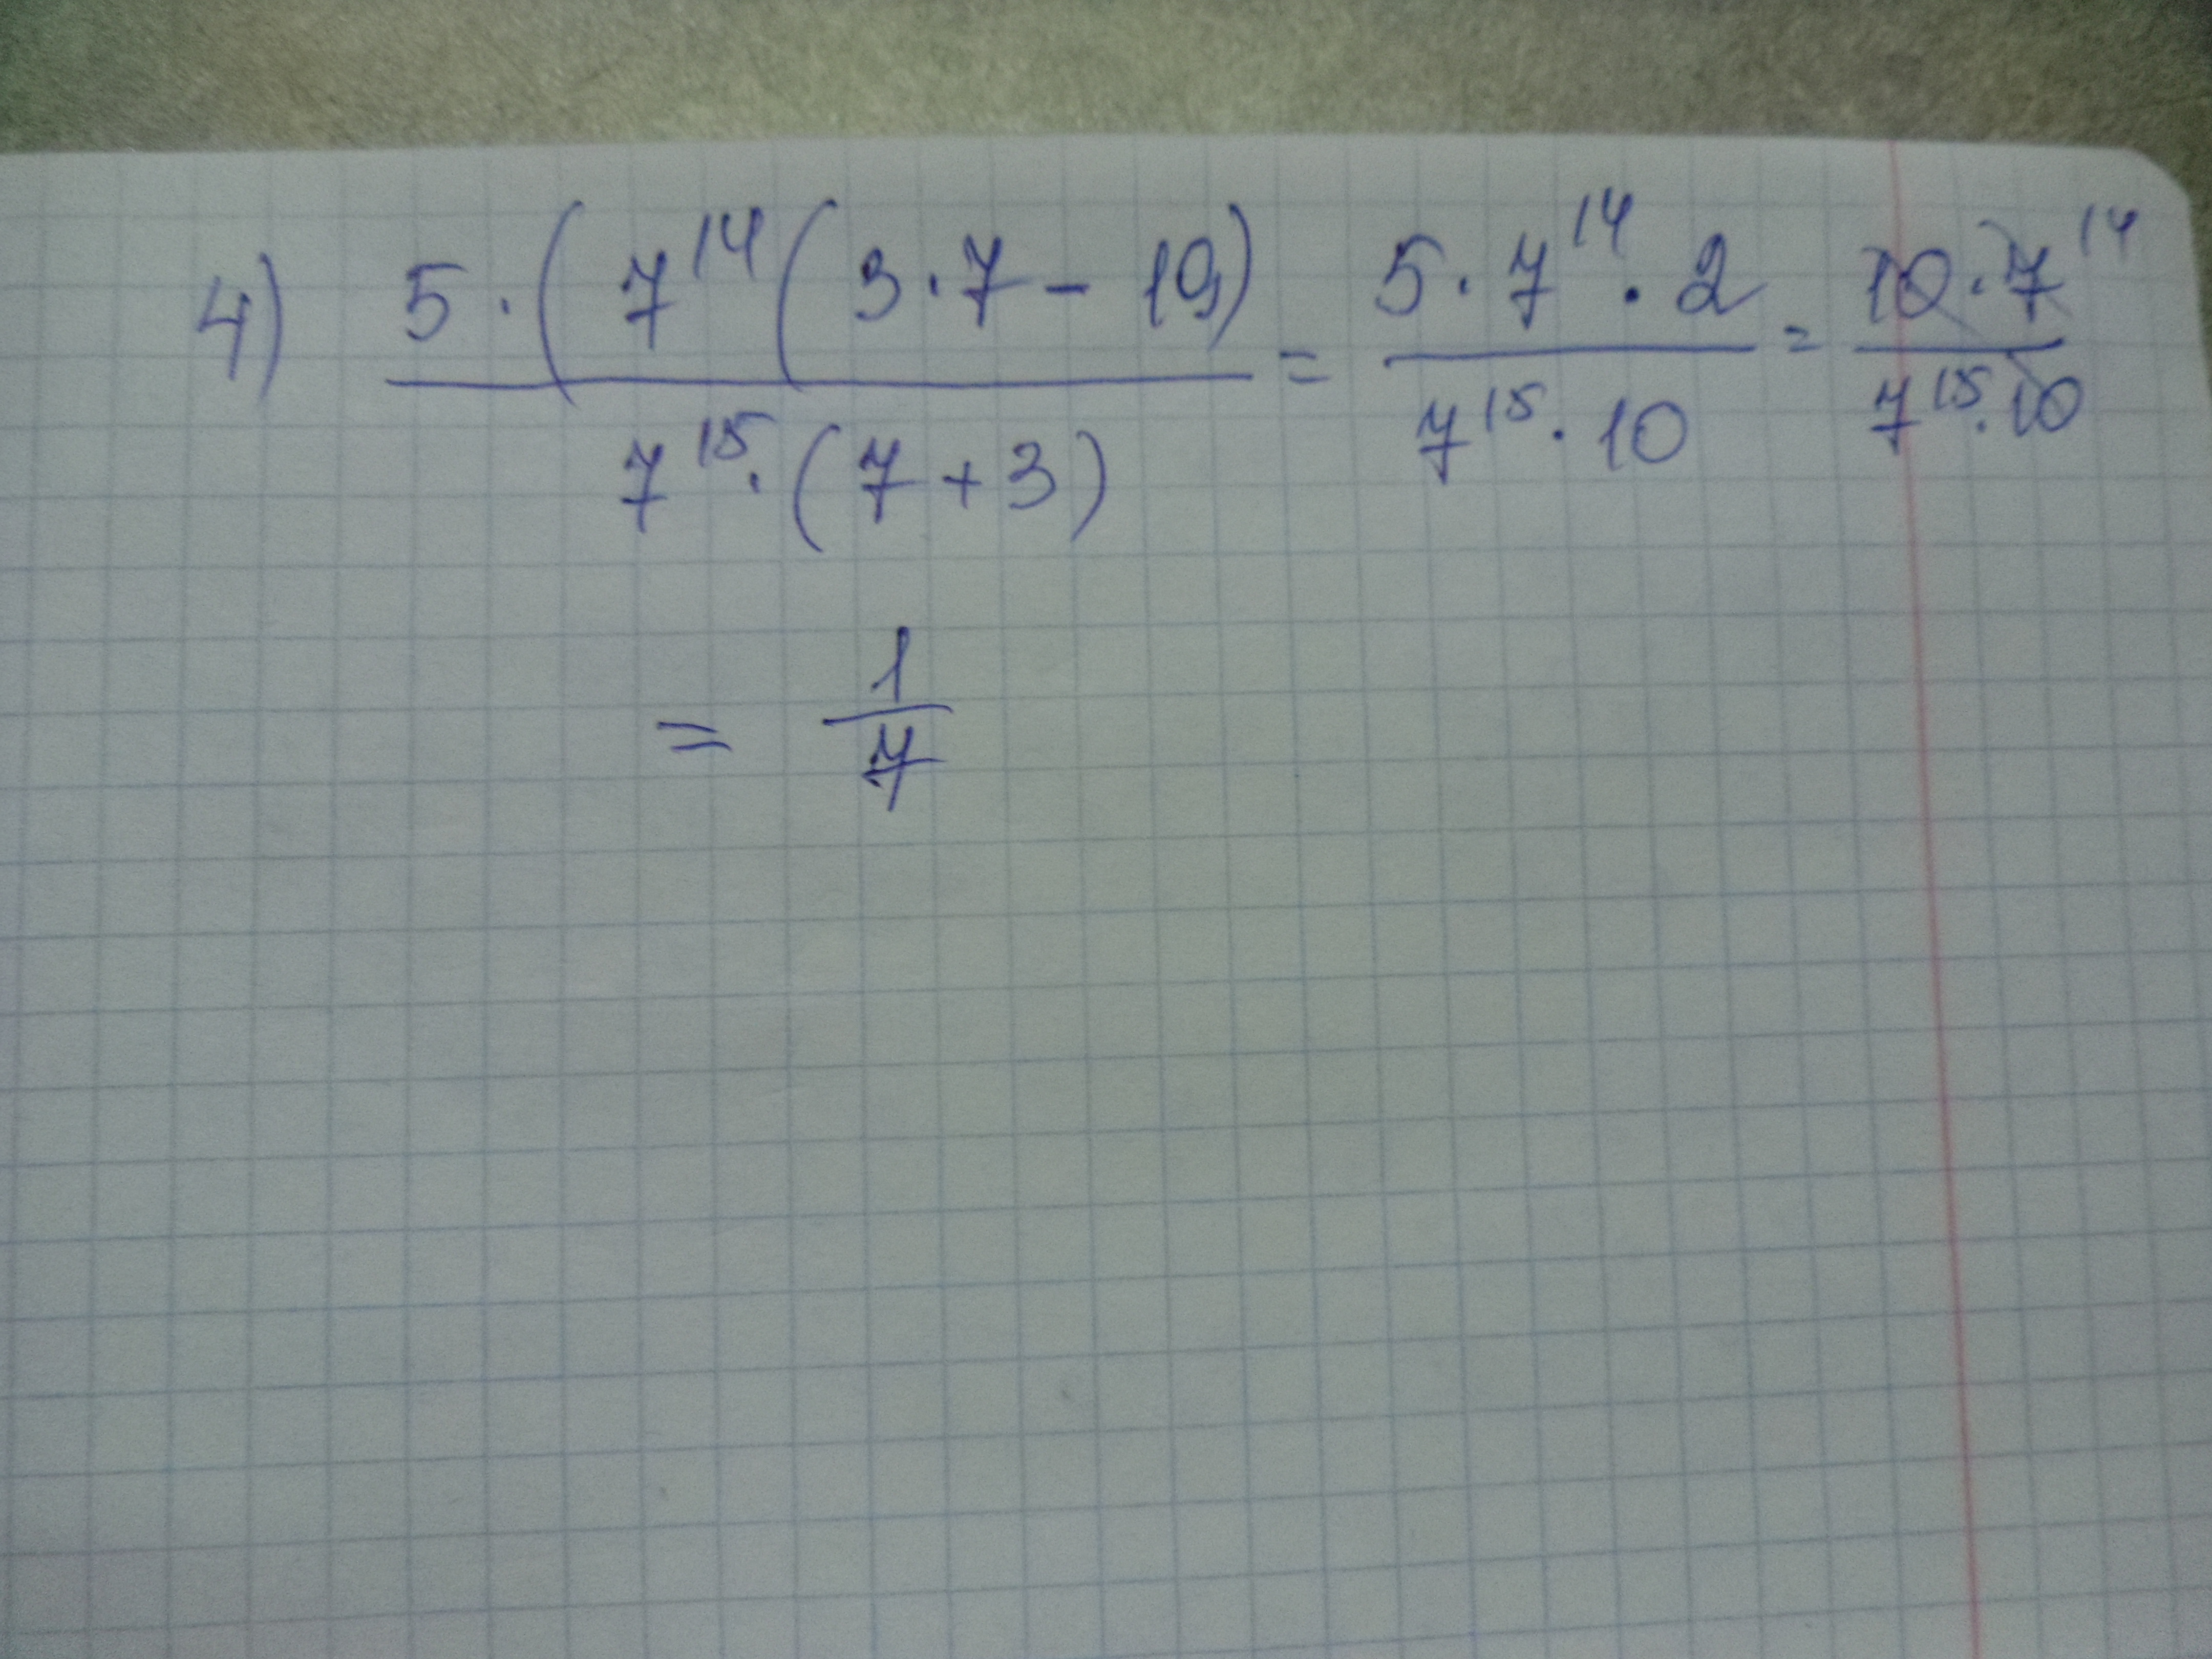 4) 5·(7¹⁴(3·7-19) / 7¹⁵·(7+3) = 5·7¹⁴·2 / 7¹⁵·10 = 10·7¹⁴ / 7¹⁵·10
= 1/7